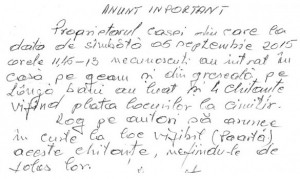 ANUNT IMPORTANT
Proprietarul casei din care la
data de sîmbătă 05 septembrie 2015
orele 11,45-13 necunoscuti au intrat în
casă pe geam si din greseală, pe
lângă bani au luat si 4 chitante
vizînd plata locurilor la cimitir.
Rog pe autori să arunce
în curte la loc vizibil (Poartă)
aceste chitante, nefiindu-le de
folos lor.